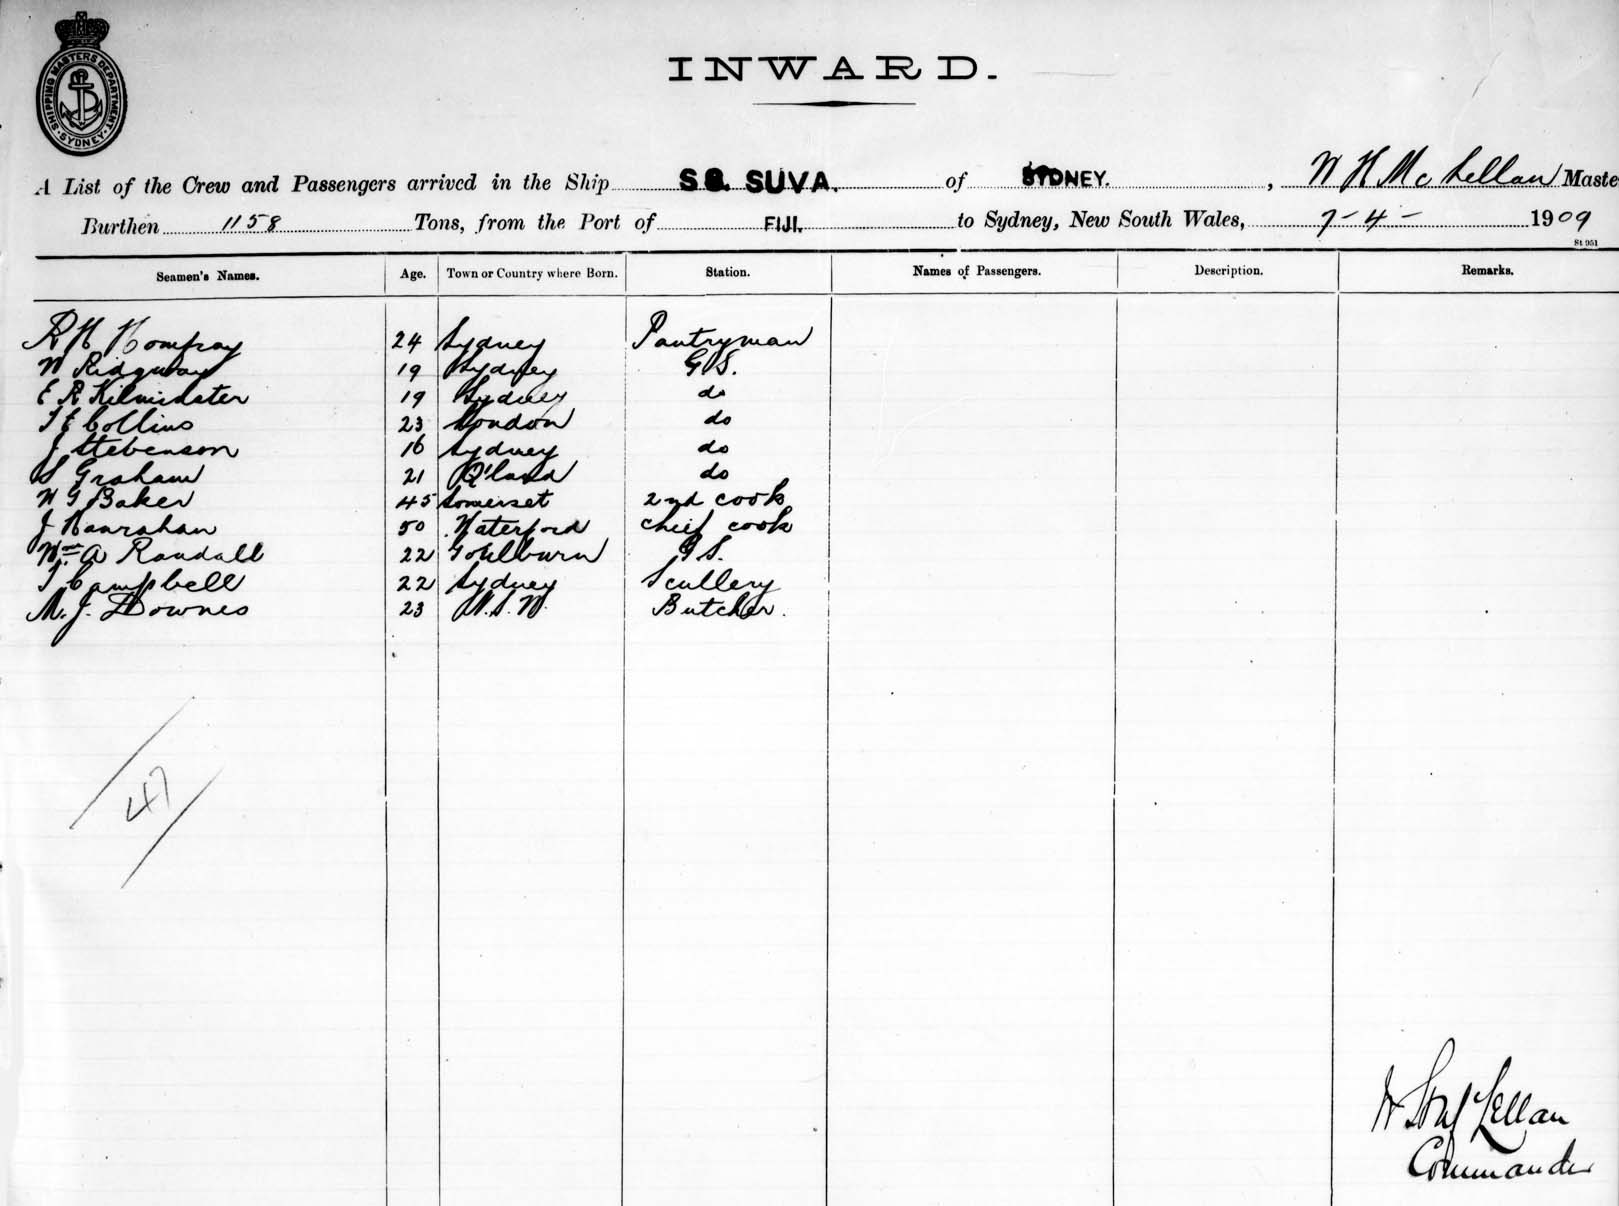 SHIPPING MASTERS DEPARTMENT · SYDNEY ·
INWARD.
A List of the Crew and Passengers arrived in the Ship S.S. SUVA. of SYDNEY. , W H McLellan Maste
Burthen 1158 Tons, from the Port of FIJI. to Sydney, New South Wales, 7-4- 1909
St 951
Seamen's Names. Age. Town or Country where Born. Station. Names of Passengers. Description. Remarks.
R H Homfray 24 Sydney Pantryman
W Ridgway 19 Sydney G S.
E R Kilminster 19 Sydney do
T E Collins 23 London do
J Stevenson 16 Sydney do
S Graham 21 Q'land do
W G Baker 45 Somerset 2nd cook
J Hanrahan 50 Waterford chief cook
Wm A Randall 22 Goulburn G S.
T Campbell 22 Sydney Scullery
M. J. Downes 23 N. S. W. Butcher.
47
McLellan
Commander